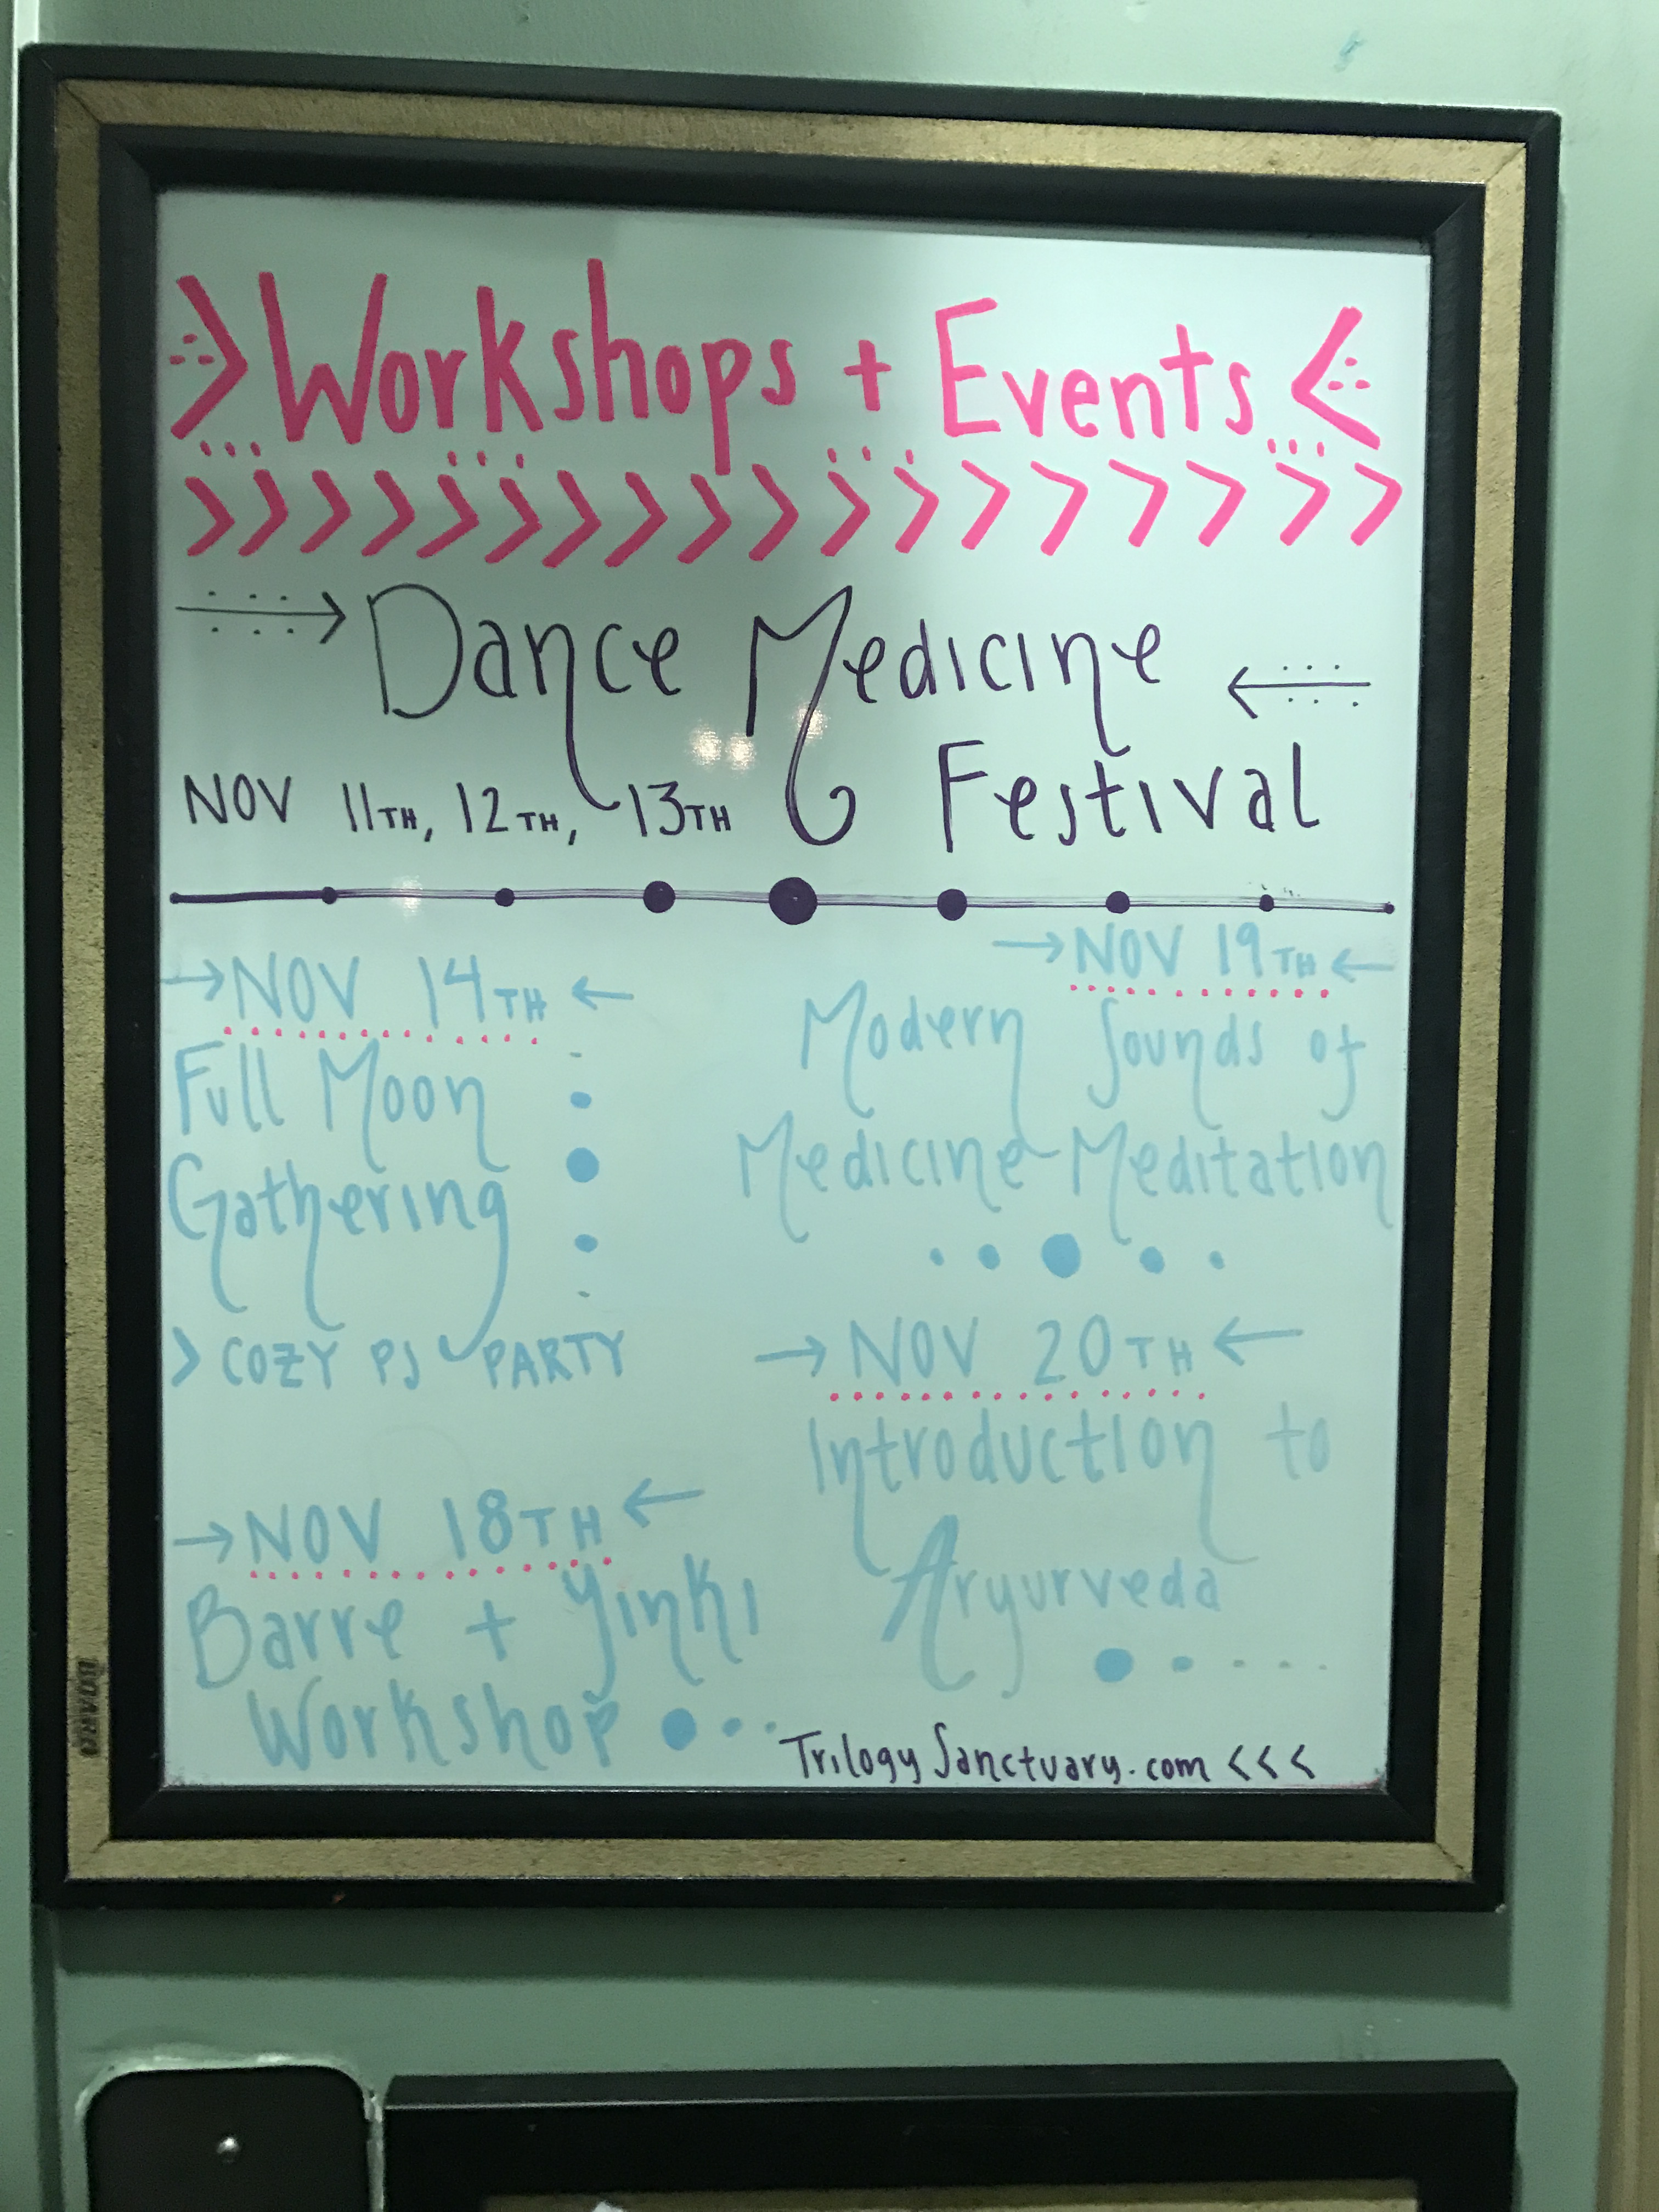 Workshops + Events
Dance Medicine
Festival
NOV 11TH, 12TH, 13TH
NOV 14TH
Full Moon
Gathering
> COZY PJ PARTY
NOV 18TH
Barre + Yinki
Workshop
NOV 19TH
Modern Sounds of
Medicine Meditation
NOV 20TH
Introduction to
Aryurveda
TrilogySanctuary.com <<<
BOARD